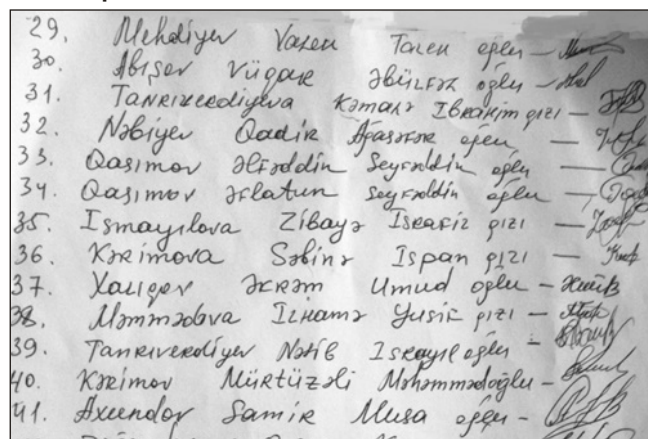 29. Mehdiyev Vaxen Tacen oğlu –
30. Abışov Vüqar Əbülfəz oğlu –
31. Tanrıverdiyeva Kəmalə İbrahim qızı –
32. Nəbiyev Qadir Ağasəfər oğlu –
33. Qasımov Əlfəddin Seyfəddin oğlu –
34. Qasımov Əflatun Seyfəddin oğlu –
35. Ismayılova Zibayə Israfil qızı –
36. Kərimova Səbinə Ispan qızı –
37. Xalıqov Əkrəm Umud oğlu –
38. Məmmədova Ilhamə Yusif qızı –
39. Tanrıverdiyev Natib Israyıl oğlu –
40. Kərimov Mürtüzəli Məhəmmədoğlu –
41. Axundov Samir Musa oğlu –